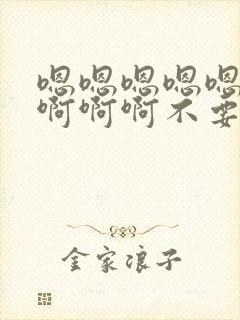 嗯嗯嗯嗯嗯
啊啊啊不要
金家浪子